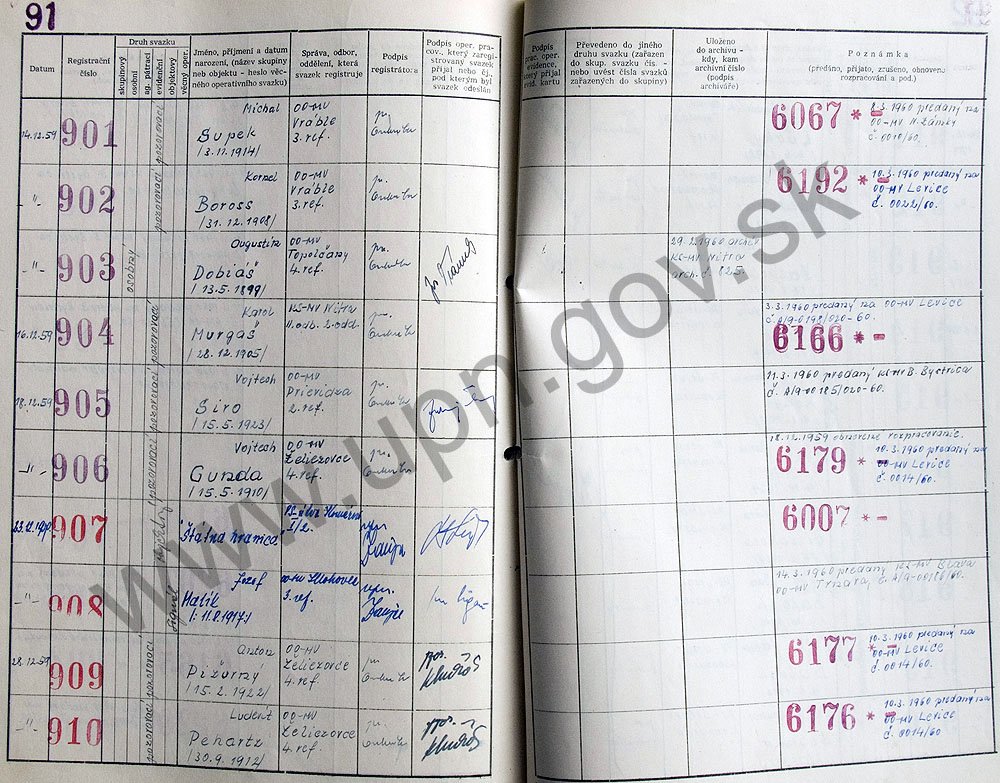 91
Datum
Registrační číslo
Druh svazku
skupinový
osobní
ag. pátrací
evidenční
objektový
věcný oper.
Jméno, příjmení a datum
narození, (název skupiny
neb objektu - heslo věc-
ného operativního svazku)
Správa, odbor,
oddělení, která
svazek registruje
Podpis
registrátora
Podpis oper. pra-
cov., který zaregi-
strovaný svazek
přijal nebo čj.,
pod kterým byl
svazek odeslán
Podpis
prac. oper.
evidence,
který přijal
evid. kartu
Převedeno do jiného
druhu svazku (zařazen
do skup. svazku čís. -
nebo uvést čísla svazků
zařazených do skupiny)
Uloženo
do archivu -
kdy, kam
archivní číslo
(podpis
archiváře)
Poznámka
(předáno, přijato, zrušeno, obnoveno
rozpracování a pod.)
14.12.59
901
pozorovací
Michal
Supek
/3.11.1914/
OO-MV
Vráble
3. ref.
6067 * -
8.3.1960 predaný na
OO-MV N. Zámky
č. 0010/60.
-"-
902
pozorovací
Kornel
Boross
/31.12.1908/
OO-MV
Vráble
3. ref.
6192 * -
10.3.1960 predaný na
OO-MV Levice
č. 0022/60.
-"-
903
osobný
Augustín
Dobiáš
/13.5.1899/
OO-MV
Topoľčany
4. ref.
29.2.1960 archív
KS-MV Nitra
arch. č. 825.
16.12.59
904
pozorovací
Karol
Murgaš
/28.12.1905/
KS-MV Nitra
II. odb. 2. odd.
3.3.1960 predaný na OO-MV Levice
č. A/9-00198/020-60.
6166 * -
18.12.59
905
pozorovací
Vojtech
Siro
/15.5.1923/
OO-MV
Prievidza
2. ref.
11.3.1960 predaný KS-MV B. Bystrica
č. A/9-00185/020-60.
-"-
906
pozorovací
Vojtech
Gunda
/15.5.1910/
OO-MV
Želiezovce
4. ref.
18.12.1959 obnovené rozpracovanie.
6179 * -
10.3.1960 predaný na
OO-MV Levice
č. 0014/60.
907
"Štátna hranica"
6007 * -
-"-
908
signál
Jozef
Malík
OO-MV Hlohovec
3. ref.
14.3.1960 predaný KS-MV Blava
OO-MV Trnava, č. A/9-00186/60.
28.12.59
909
pozorovací
Anton
Pižurný
/15.2.1922/
OO-MV
Želiezovce
4. ref.
6177 * -
10.3.1960 predaný na
OO-MV Levice
č. 0014/60.
-"-
910
pozorovací
Ludevít
Pehartz
/30.9.1912/
OO-MV
Želiezovce
4. ref.
6176 * -
10.3.1960 predaný na
OO-MV Levice
č. 0014/60
www.upn.gov.sk